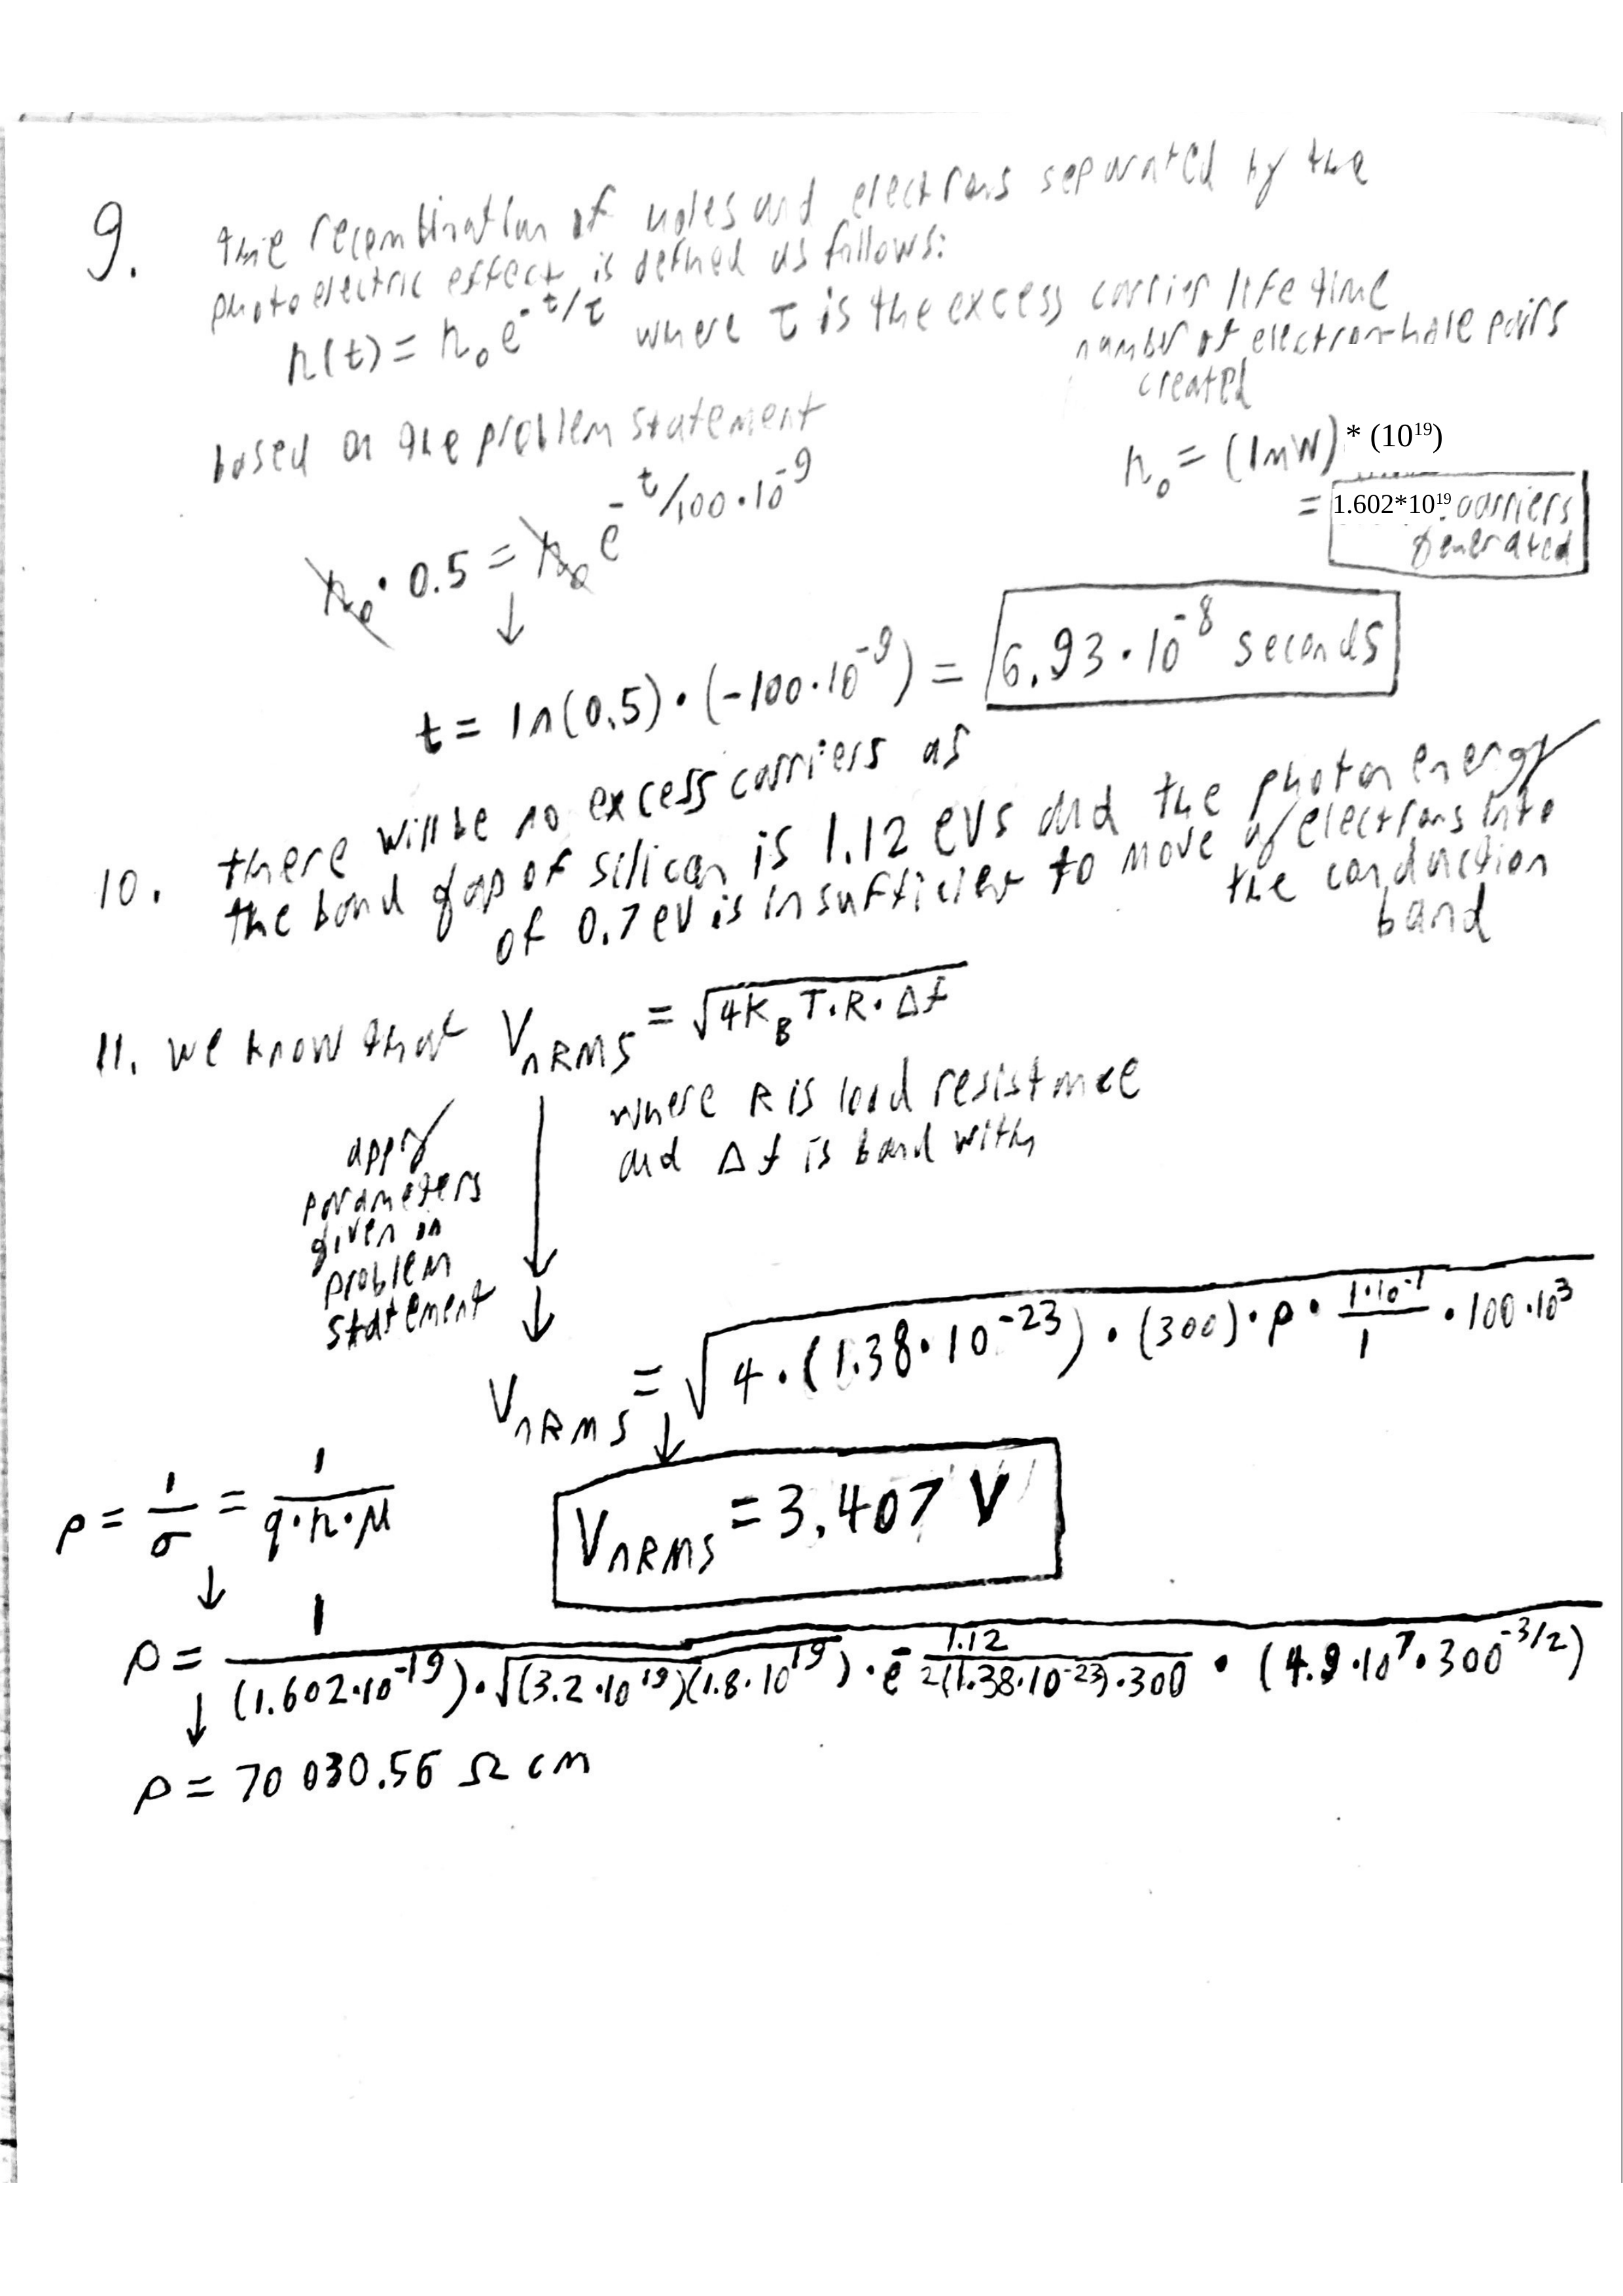 9. the recombination of holes and electrons separated by the
photoelectric effect is defined as follows:
n(t) = n₀e^(-t/τ) where τ is the excess carrier life time
number of electron-hole pairs
created
based on the problem statement
n₀ = (1mW) * (10¹⁹)
= 1.602*10¹⁹ carriers
generated
n₀ · 0.5 = n₀ e^(-t/100·10⁻⁹)
↓
t = ln(0.5) · (-100·10⁻⁹) = 6.93·10⁻⁸ seconds
10. there will be no excess carriers as
the band gap of silicon is 1.12 eVs and the photon energy
of 0.7 eV is insufficient to move electrons into
the conduction
band
11. we know that VnRMS = √(4K_B T·R·Δf)
where R is load resistance
and Δf is band with
apply
parameters
given in
problem
statement
VnRMS = √(4·(1.38·10⁻²³)·(300)·ρ·(1·10⁻¹/1)·100·10³)
↓
VnRMS = 3.407 V
ρ = 1/σ = 1/(q·n·μ)
↓
ρ = 1/((1.602·10⁻¹⁹)·√((3.2·10¹⁹)(1.8·10¹⁹))·e^(-1.12/(2(1.38·10⁻²³)·300))·(4.9·10⁷·300^(-3/2)))
↓
ρ = 70 030.56 Ω cm